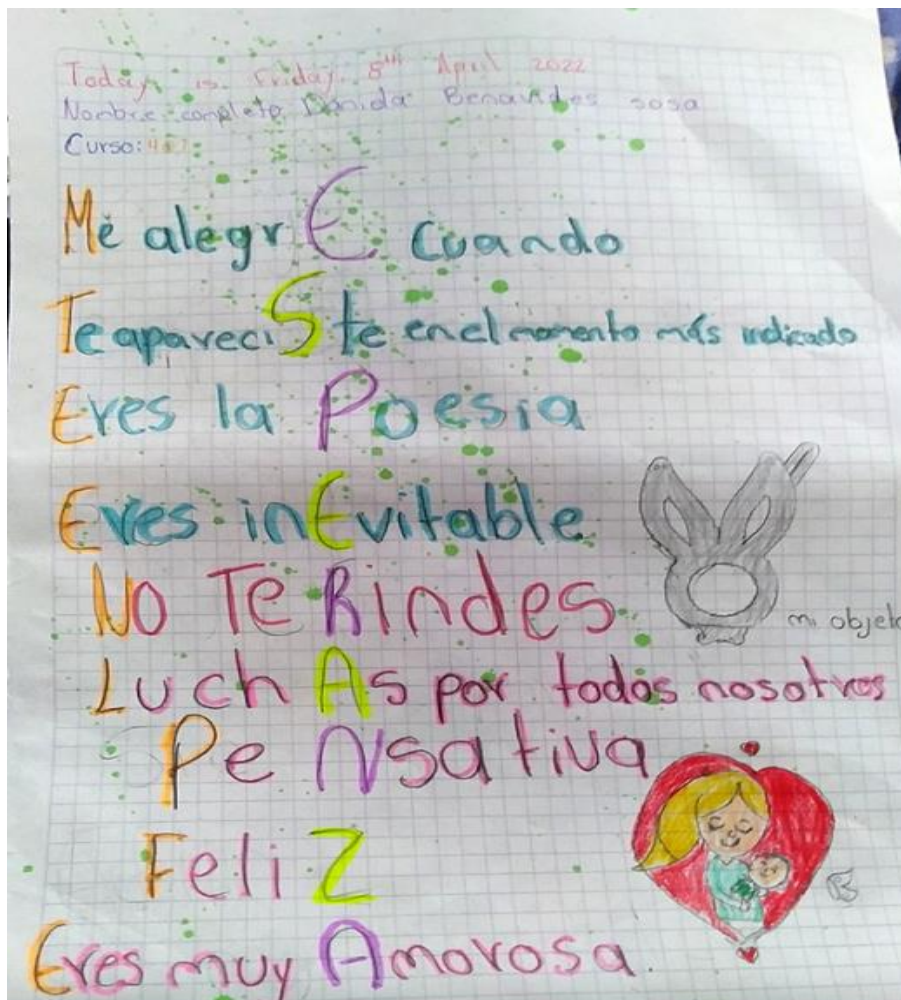 Today is Friday 8th April 2022
Nombre completo Danida Benavides sosa
Curso: 407
Me alegrE Cuando
Te apareciSte en el momento más indicado
Eres la Poesia
Eres inEvitable
No Te Rindes
mi objeto
Luch As por todos nosotros
PeNsativa
FeliZ
Eres muy Amorosa.